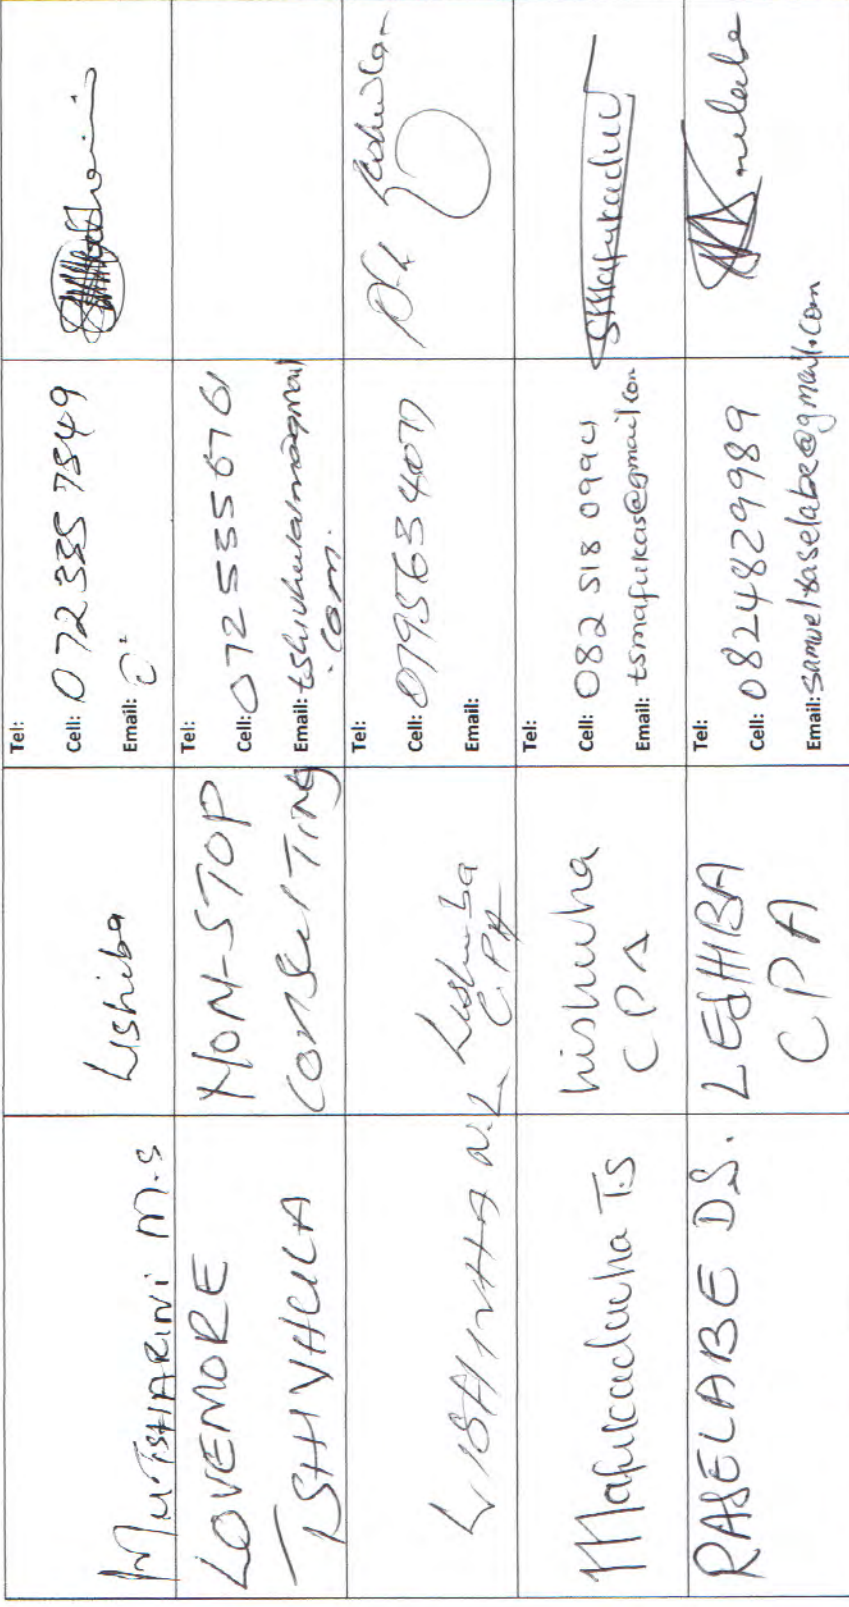 Mutsharini M.S
Lishiba
Tel:
Cell: 072 335 7549
Email:
LOVEMORE
TSHIVHULA
NON-STOP
CONSULTING
Tel:
Cell: 0725556761
Email: tshivhulalm@gmail
.com
N.L
CPA
Tel:
Cell: 0795634077
Email:
Mafukaduvha T.S
CPA
Tel:
Cell: 082 518 0994
Email: tsmafukas@gmail.com
RASELABE D.S.
LESHIBA
CPA
Tel:
Cell: 0824829989
Email: samuelraselabe@gmail.com